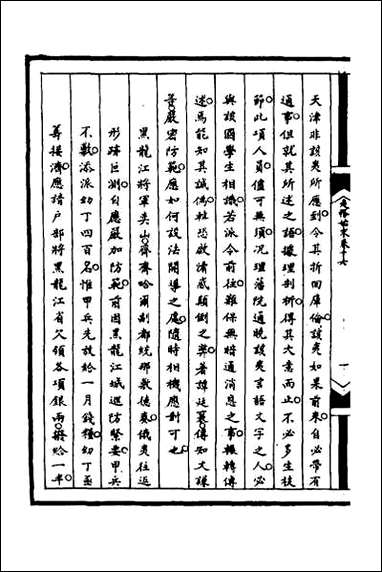 籌辦夷務始末卷十六
一
天津非該夷所應到今其折回庫倫該夷如果前來自必帶有
通事但就其所述之語據理剖析得其大意而止不必多生枝
節此項人員儘可無須況理藩院通曉該夷言語文字之人必
與該國學生相識若派令前往難保無暗通消息之事輾轉傳
述焉能知其誠偽杜恐啟猜惑顛倒之弊著諱廷襄傳知文謙
等嚴密防範應如何設法開導之處隨時相機應對可也
黑龍江將軍奕山齊齊哈爾副都統那敷德奏俄夷往返
形蹟叵測自應嚴加防範前因黑龍江城巡防緊要甲兵
不敷添派幼丁四百名惟甲兵先放給一月錢糧幼丁亟
籌接濟應請戶部將黑龍江省欠領各項銀兩撥給一半